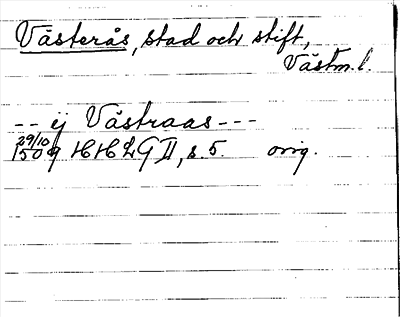 Västerås, stad och stift,
Västm.l.
-- ij Västraas ---
29/10 1509 HHLG II, s. 5. orig.